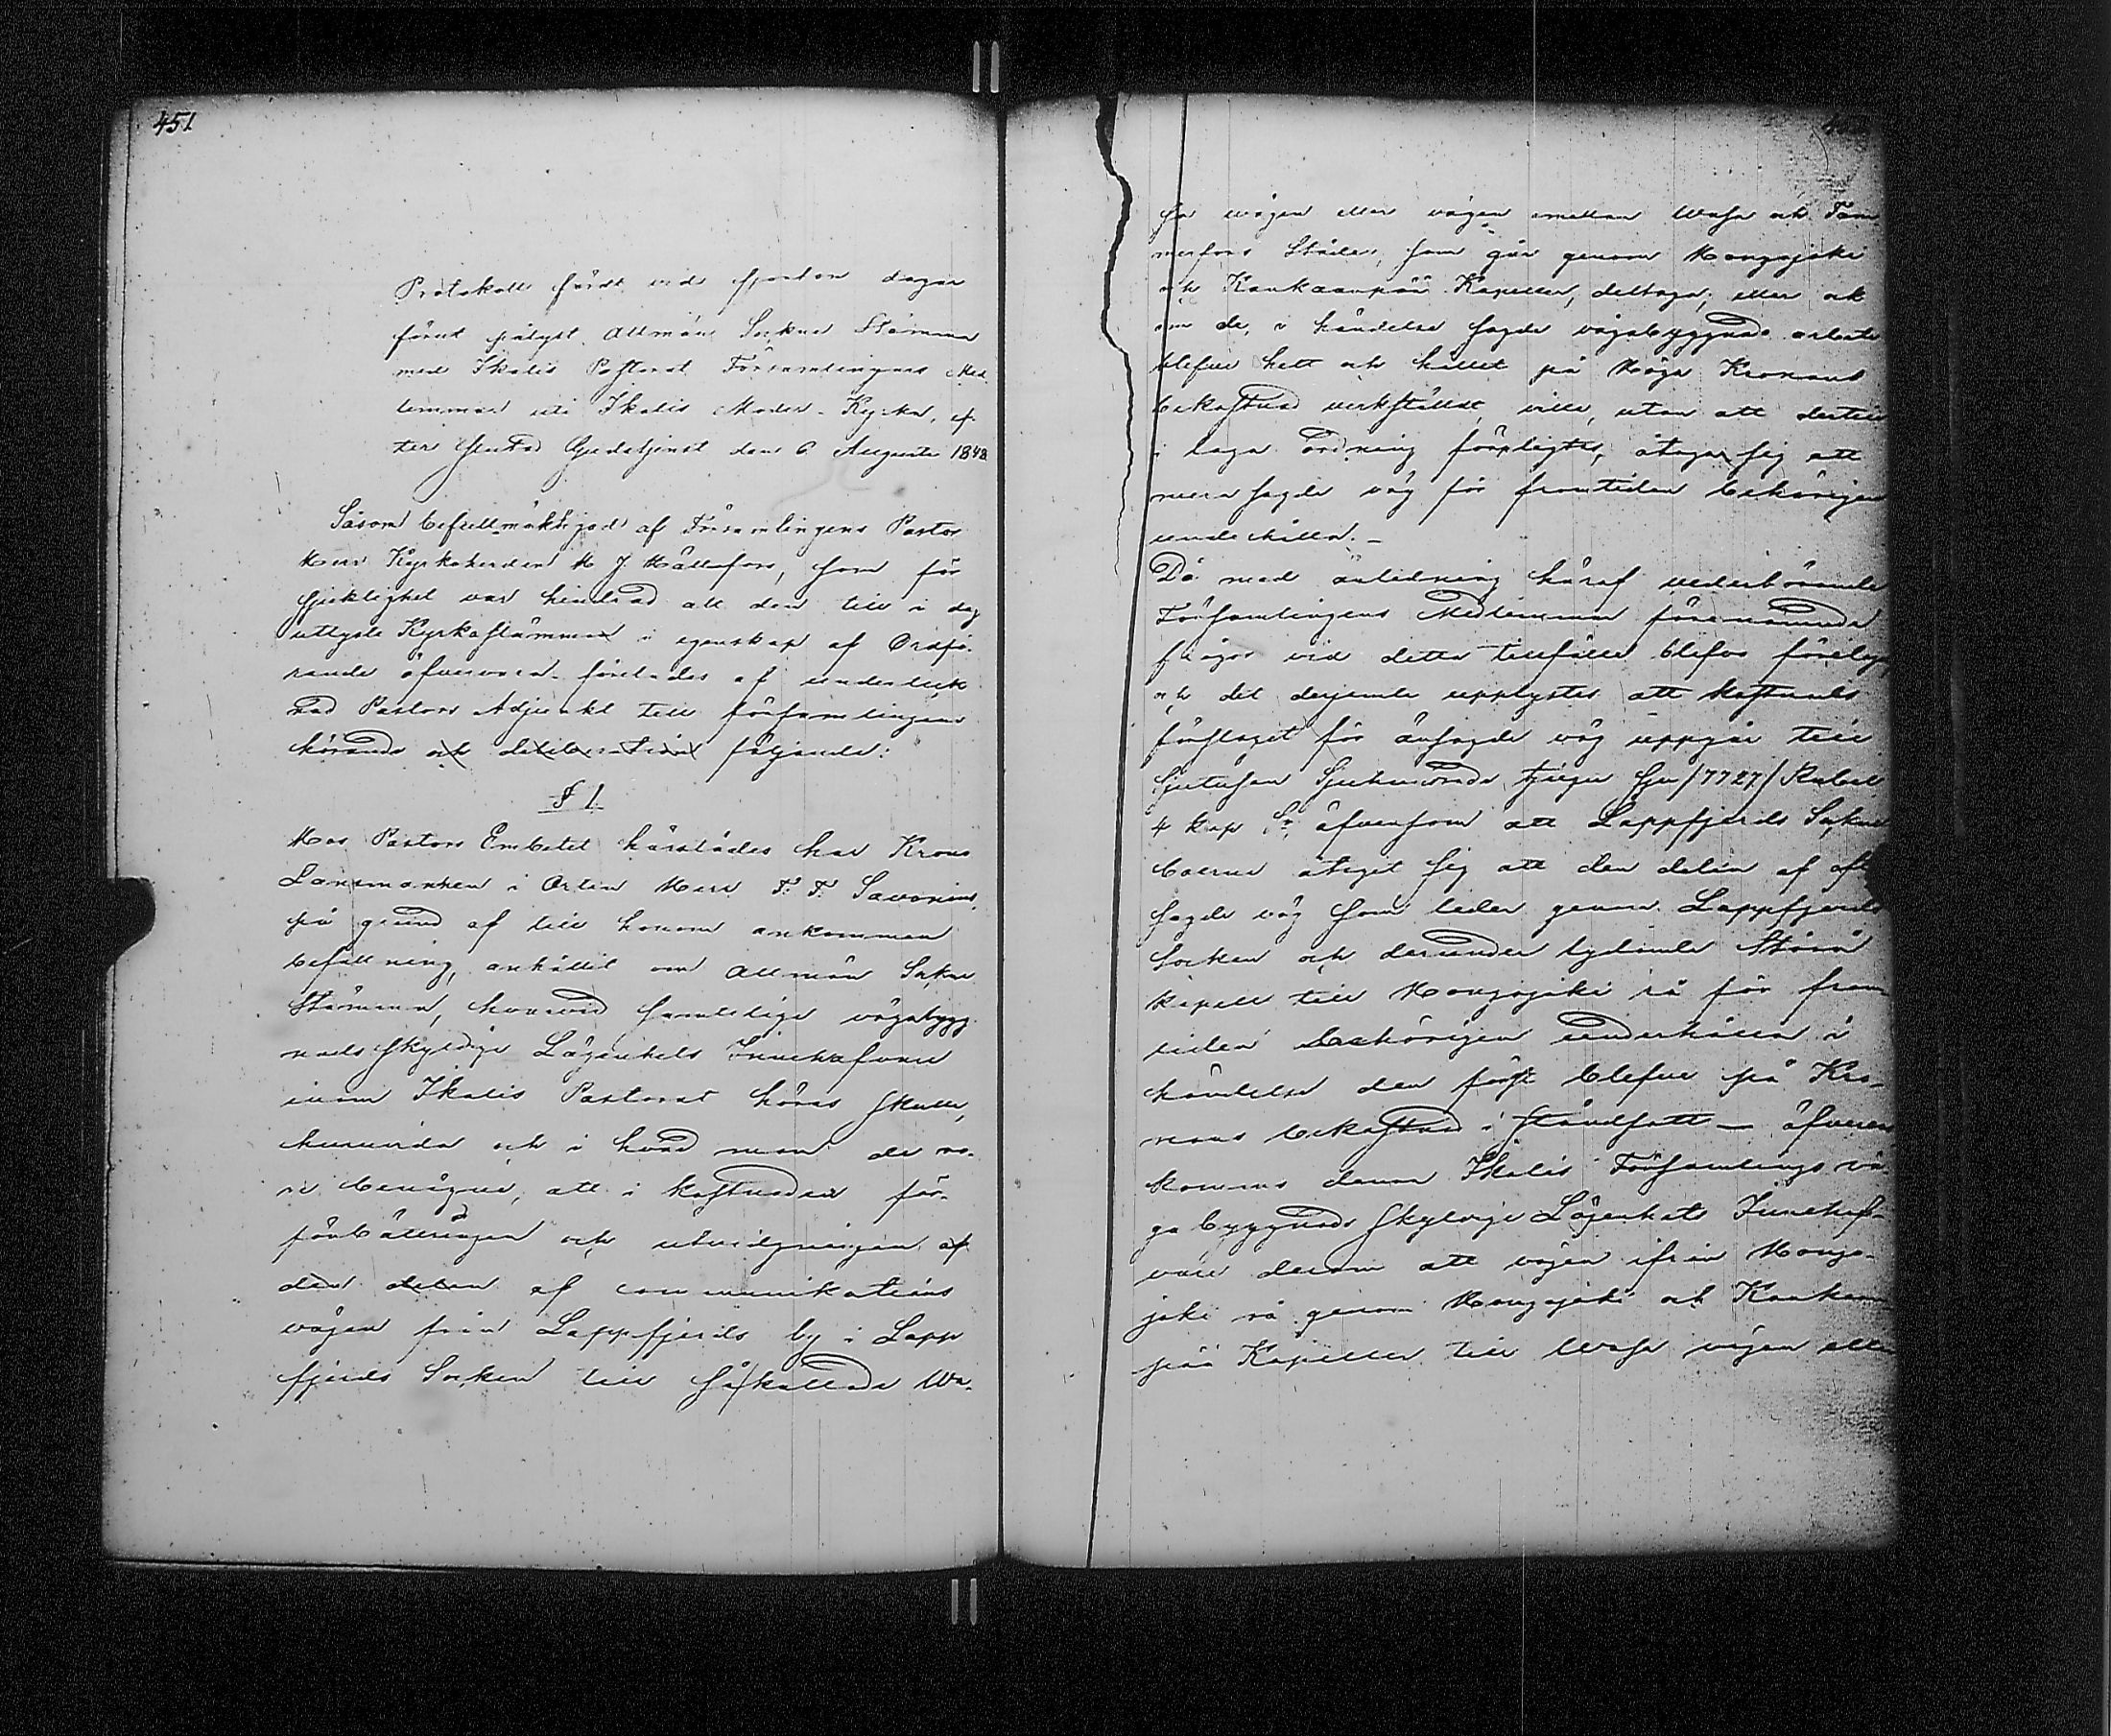 451
Protokoll fördt vid fjorton dagar
förut pålyst Allmän Socknestämma
med Ikalis Pastorat Församlingens Med
lemmar uti Ikalis Moder-Kyrka, ef
ter slutad Gudstjenst den 6 Augusti 1848
Såsom befullmäktigad af Församlingens Pastor
Herr Kyrkoherden H J Hällefors, som för
sjuklighet var hindrad att den till i dag
utlyste Kyrkostämman i egenskap af Ordfö-
rande öfvervara företedes af undertek
nad Pastors Adjunkt till församlingens
hörande och deliberation följande:
§ 1
Hos Pastors Embetet härstädes har Krono
Länsmannen i Orten Herr F. F. Savonius,
på grund af till honom ankommen
befallning, anhållit om Allmän Sockne
stämma, hvarvid samtelige vägabygg-
nads skyldige Lägenhets Innehafvare
inom Ikalis Pastorat höras skulle,
huruvida och i hvad mon de vo-
re benägne, att i kostnaden för
förbättringen och utvidgningen af
den delen af communikations
vägen från Lappfjerds by i Lapp
fjerds Socken till så kallade Wa-
sa vägen eller vägen emellan Wasa och Tam
merfors Städer, som går genom Hongojoki
och Kankaanpää Kapeller, deltaga, eller ock
om de, i händelse sagde vägabyggnads arbete
blefve helt och hållet på Höga Kronans
bekostnad verkstäldt, ville, utan att dertill
i laga ordning förpligtas, åtaga sig att
mera sagde väg för framtiden behörigen
underhålla. _
Då med anledning häraf vederbörande
Församlingens Medlemmar förenämnde
frågor vid detta tillfälle blefvo förelagde
och det derjemte upplystes att kostnads
förslaget för änsagde väg uppgår till
Sjutusen Sjuhundrade tjugu sju /7727/ Rubel
4 kop Sr, äfvensom att Lappfjerds Sockne
boerne åtagit sig att den delen af ofta
sagde väg som leder genom Lappfjerds
Socken och derunder lydande Storå
kapell till Hongojoki rå för fram
tiden behörigen underhålla i
händelse den först blefve på Kro-
nans bekostnad i ståndsatt _ öfverens
kommo denna Ikalis Församlings vä-
ga byggnads skyldige Lägenhets Innehaf-
vare derom att vägen ifrån Hongo-
joki rå genom Hongojoki och Kankaan
pää Kapeller till Wasa vägen eller